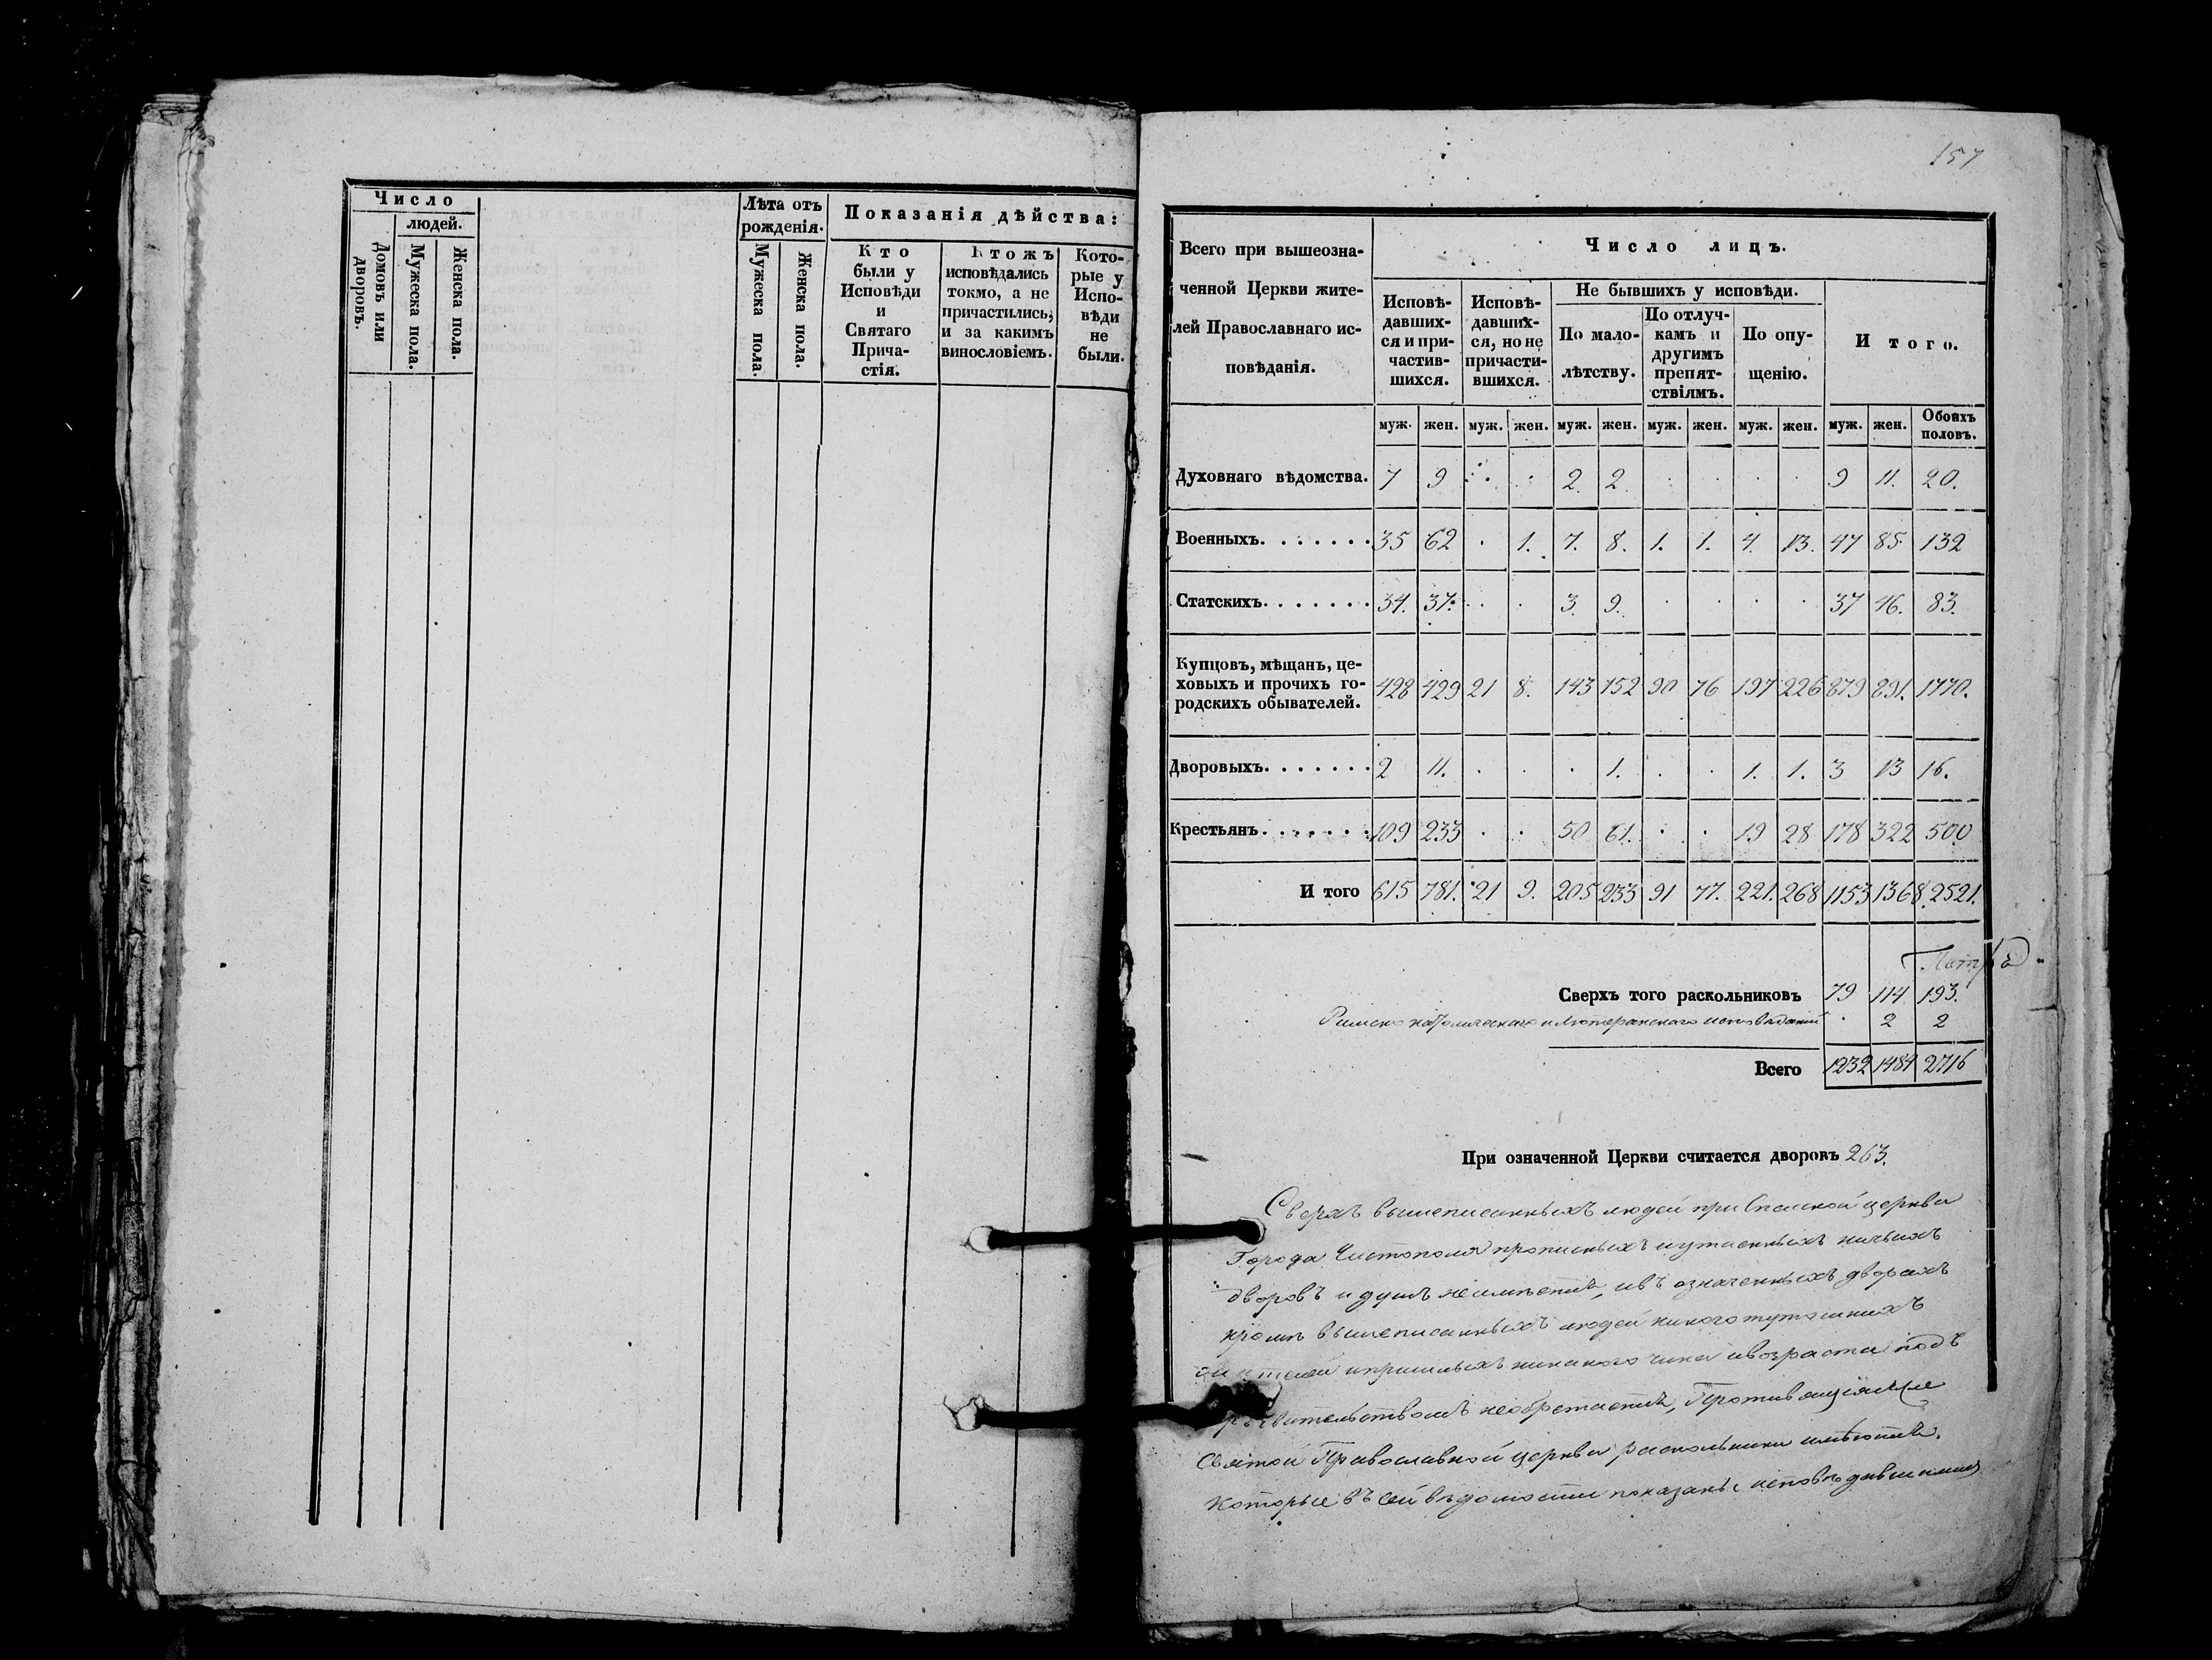 Число
людей.
Домовъ или дворовъ.
Мужеска пола.
Женска пола.
Лѣта отъ
рожденія.
Мужеска пола.
Женска пола.
Показанія дѣйства:
Кто
были у
Исповѣди
и
Святаго
Прича-
стія.
Ктожъ
исповѣдались
токмо, а не
причастились,
и за какимъ
винословіемъ.
Кото-
рые у
Испо-
вѣди
не
были.
157
Всего при вышеозна-
ченной Церкви жите-
лей Православнаго ис-
повѣданія.
Число лицъ.
Исповѣ-
давших-
ся и при-
частив-
шихся.
Исповѣ-
давших-
ся, но не
причасти-
вшихся.
Не бывшихъ у исповѣди.
По мало-
лѣтству.
По отлуч-
камъ и
другимъ
препят-
ствіямъ.
По опу-
щенію.
И того.
муж. жен. муж. жен. муж. жен. муж. жен. муж. жен. муж. жен. Обоихъ половъ.
Духовнаго вѣдомства. 7 9 . . 2. 2. . . . . 9 11. 20.
Военныхъ. . . . . . . 35 62 . 1. 7. 8. 1. 1. 4. 13. 47 85 132
Статскихъ. . . . . . . 34. 37. . . 3. 9. . . . . 37 46. 83.
Купцовъ, мѣщанъ, це-
ховыхъ и прочихъ го-
родскихъ обывателей. 428 429 21 8. 143 152 90 76 197 226 879 891. 1770.
Дворовыхъ. . . . . . . 2 11. . . . 1. . . 1. 1. 3 13 16.
Крестьянъ. . . . . . . 109 233 . . 50 61. . . 19 28 178 322 500
И того 615 781. 21 9. 205 233 91 77. 221. 268 1153 1368. 2521.
Сверхъ того раскольниковъ 79 114 193.
Римско католическаго и Лютеранскаго исповѣданій . 2 2
Всего 1232 1484 2716
При означенной Церкви считается дворовъ 263.
Сверхъ вышеписанныхъ людей при Спаской церкви
Города Чистополя прописныхъ и утаенныхъ ничьихъ
дворовъ и душъ неимѣется, и въ означенныхъ дворахъ
кромѣ вышеписанныхъ людей никого тутошнихъ
жителей и пришлыхъ никакого чина и возраста подъ
рукъвительствомъ необретается, Противящіяся
Святой Православной церкви раскольники имѣются,
которые въ сей вѣдомости показаны исповѣдавшимися